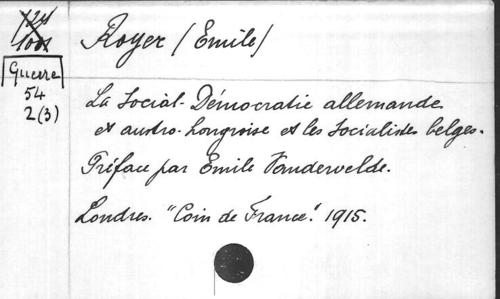 Royer (Emile)
Guerre
54
2(3)
La Social-Démocratie allemande
et austro-hongroise et les Socialistes belges.
Préface par Emile Vandervelde.
Londres. "Coin de France". 1915.